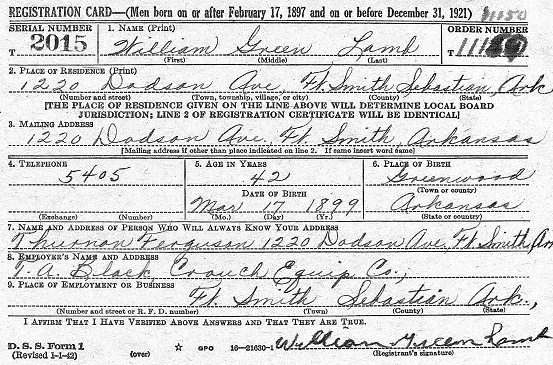 REGISTRATION CARD—(Men born on or after February 17, 1897 and on or before December 31, 1921) 11150
SERIAL NUMBER 1. NAME (Print) ORDER NUMBER
T 2015 William Green Lamb T
(First) (Middle) (Last)
2. PLACE OF RESIDENCE (Print)
1220 Dodson Ave, Ft. Smith Sebastian, Ark
(Number and street) (Town, township, village, or city) (County) (State)
[THE PLACE OF RESIDENCE GIVEN ON THE LINE ABOVE WILL DETERMINE LOCAL BOARD
JURISDICTION; LINE 2 OF REGISTRATION CERTIFICATE WILL BE IDENTICAL]
3. MAILING ADDRESS
1220 Dodson Ave. Ft. Smith, Arkansas
[Mailing address if other than place indicated on line 2. If same insert word same]
4. TELEPHONE 5. AGE IN YEARS 6. PLACE OF BIRTH
5405 42 Greenwood
DATE OF BIRTH (Town or county)
Mar. 17 1899 Arkansas
(Exchange) (Number) (Mo.) (Day) (Yr.) (State or country)
7. NAME AND ADDRESS OF PERSON WHO WILL ALWAYS KNOW YOUR ADDRESS
Thurman Ferguson 1220 Dodson Ave, Ft. Smith, Ark
8. EMPLOYER'S NAME AND ADDRESS
T. A. Black Crouch Equip Co.,
9. PLACE OF EMPLOYMENT OR BUSINESS
Ft. Smith Sebastian Ark.,
(Number and street or R. F. D. number) (Town) (County) (State)
I AFFIRM THAT I HAVE VERIFIED ABOVE ANSWERS AND THAT THEY ARE TRUE.
D. S. S. Form 1
(Revised 1-1-42) (over) ☆ GPO 16—21630-1 William Green Lamb
(Registrant's signature)